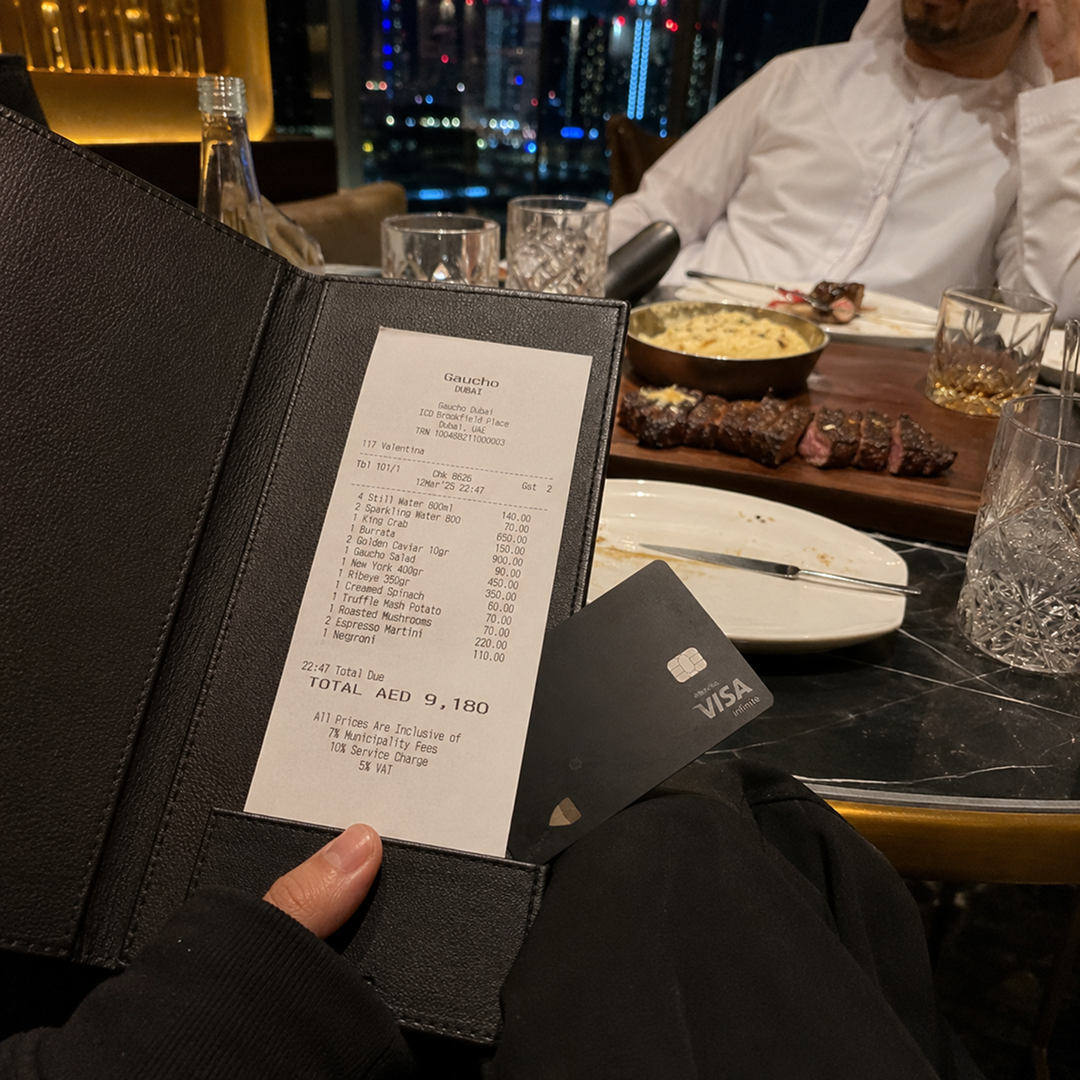 Gaucho
DUBAI
Gaucho Dubai
ICD Brookfield Place
Dubai, UAE
TRN 100488211000003
117 Valentina
Tbl 101/1 Chk 8626 Gst 2
12Mar'25 22:47
4 Still Water 800ml 140.00
2 Sparkling Water 800 70.00
1 King Crab 650.00
1 Burrata 150.00
2 Golden Caviar 10gr 900.00
1 Gaucho Salad 90.00
1 New York 400gr 450.00
1 Ribeye 350gr 350.00
1 Creamed Spinach 60.00
1 Truffle Mash Potato 70.00
1 Roasted Mushrooms 70.00
2 Espresso Martini 220.00
1 Negrroni 110.00
22:47 Total Due
TOTAL AED 9,180
All Prices Are Inclusive of
7% Municipality Fees
10% Service Charge
5% VAT
VISA
Infinite